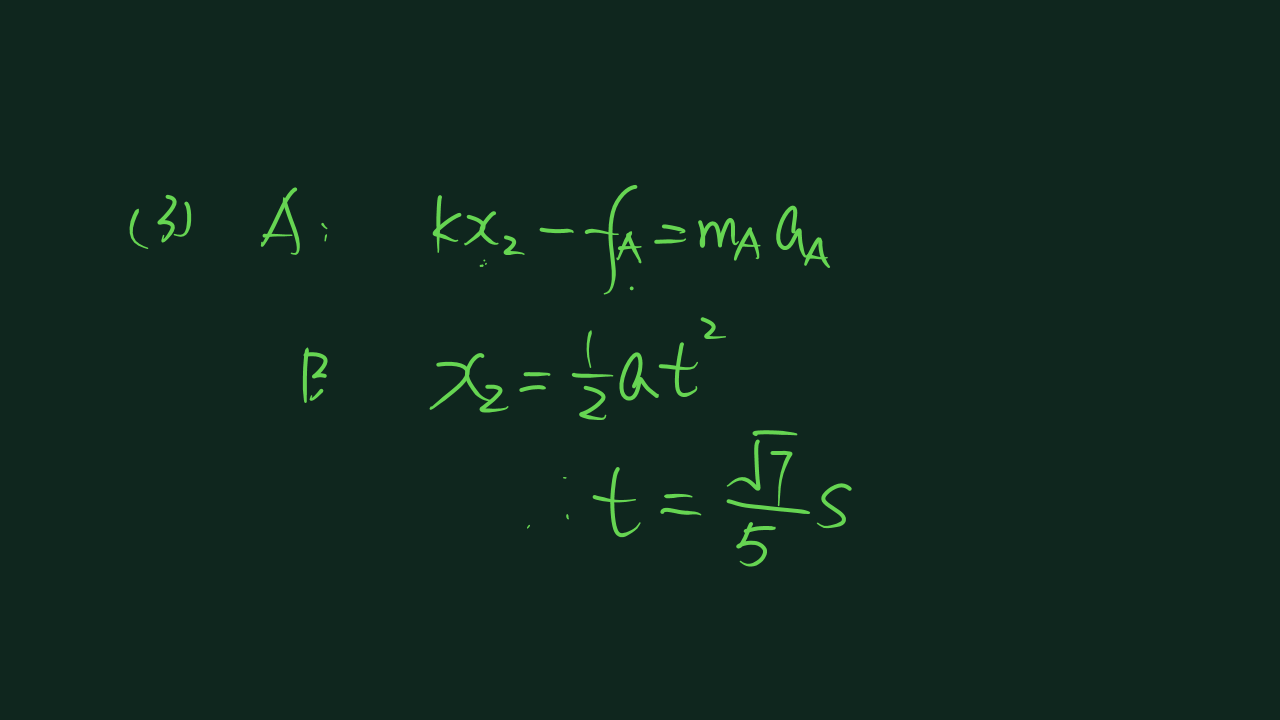 (3) A: kx₂ - f_A = m_A a_A
B: x₂ = 1/2 at²
∴ t = √7/5 s